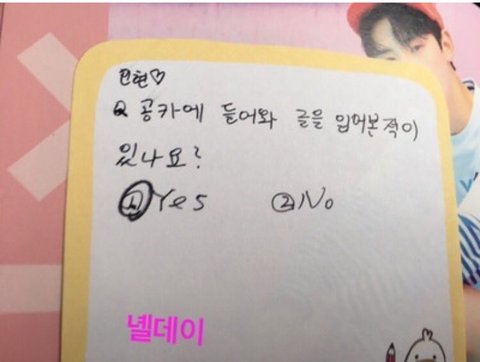 민현♡
Q 공카에 들어와 글을 읽어본적이
있나요?
① Yes ② No
녤데이